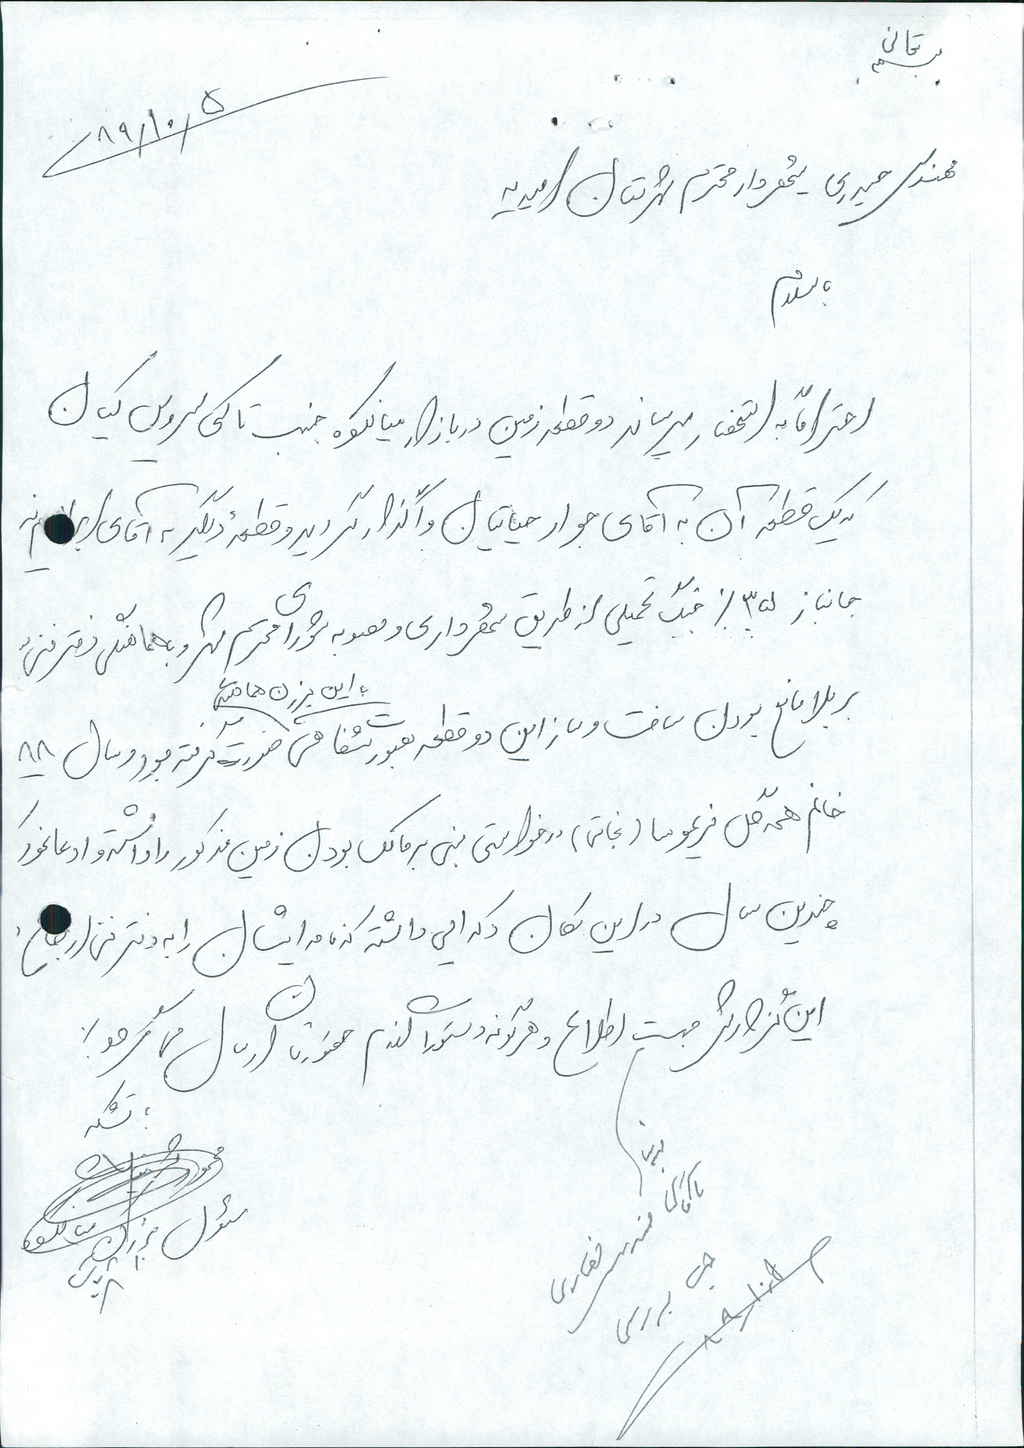 بسمه تعالی
۸۹/۱۰/۵
مهندس حیدری شهردار محترم شهرستان امیدیه
باسلام
احتراماً به استحضار میرساند دو قطعه زمین در بازار میانکوه جنب تاکسی سرویس کیان
که یک قطعه آن به آقای جواد حیاتیان واگذار گردید و قطعه دیگر به آقای
جانباز ۳۵٪ جنگ تحمیلی از طریق شهرداری و مصوبه شورای محترم شهر و با هماهنگی دفتر فنی
به این برزن هماهنگی
بر بلامانع بودن ساخت و ساز این دو قطعه بصورت شفاهی صورت گرفته بود و سال ۸۸
خانم همه گل فریمو سا (نجاتی) درخواستی مبنی بر مالک بودن زمین مذکور را داشته و ادعا نمود که
چندین سال در این مکان دکه ایی داشته که نامه ایشان را به دفتر فنی ارجاع
این گزارش جهت اطلاع و هرگونه دستور اقدام حضورتان ارسال می گردد.
با تشکر
مسئول برزن
میانکوه
جناب آقای مهندس غفاری
جهت بررسی
۸۹/۱۰/۵